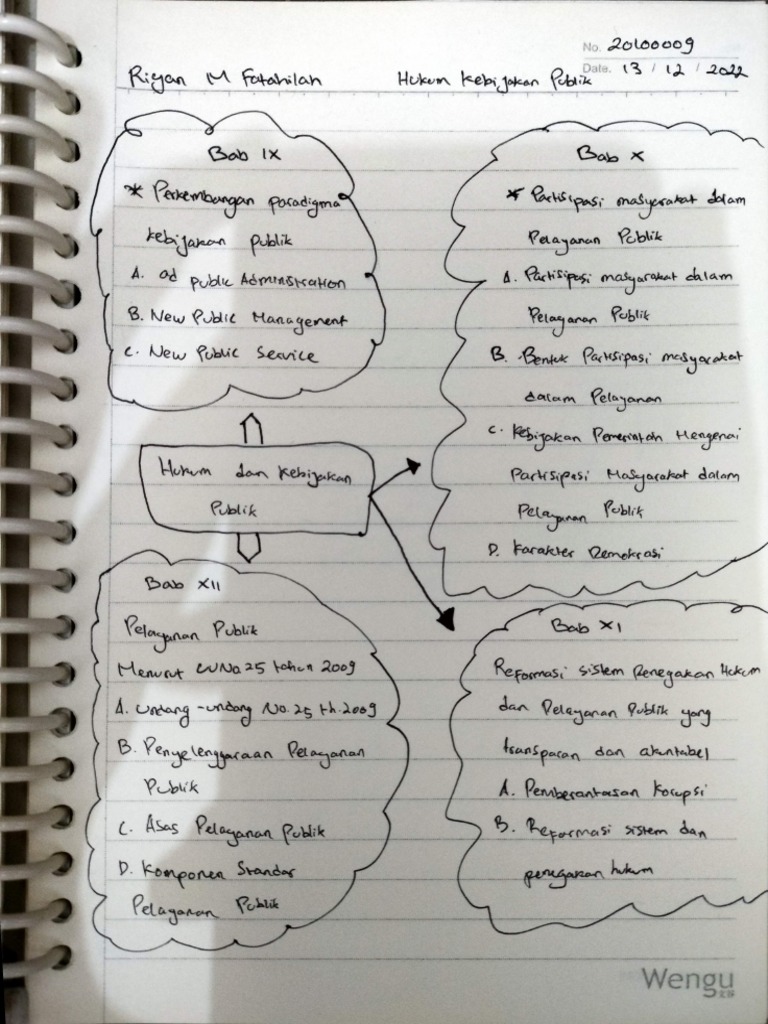 No. 20100009
Date. 13 / 12 / 2022
Riyan M Fatahilah
Hukum Kebijakan Publik
Bab IX
* Perkembangan paradigma
kebijakan publik
A. Od public Administration
B. New Public Management
C. New Public Service
Bab X
* Partisipasi masyarakat dalam
Pelayanan Publik
A. Partisipasi masyarakat dalam
Pelayanan Publik
B. Bentuk Partisipasi masyarakat
dalam Pelayanan
C. Kebijakan Pemerintah Mengenai
Partisipasi Masyarakat dalam
Pelayanan Publik
D. Karakter Demokrasi
Hukum dan Kebijakan
Publik
Bab XII
Pelayanan Publik
Menurut UU No. 25 tahun 2009
A. Undang-undang No. 25 th. 2009
B. Penyelenggaraan Pelayanan
Publik
C. Asas Pelayanan Publik
D. Komponen Standar
Pelayanan Publik
Bab XI
Reformasi sistem Penegakan Hukum
dan Pelayanan Publik yang
transparan dan akuntabel
A. Pemberantasan Korupsi
B. Reformasi sistem dan
penegakan hukum
Wengu